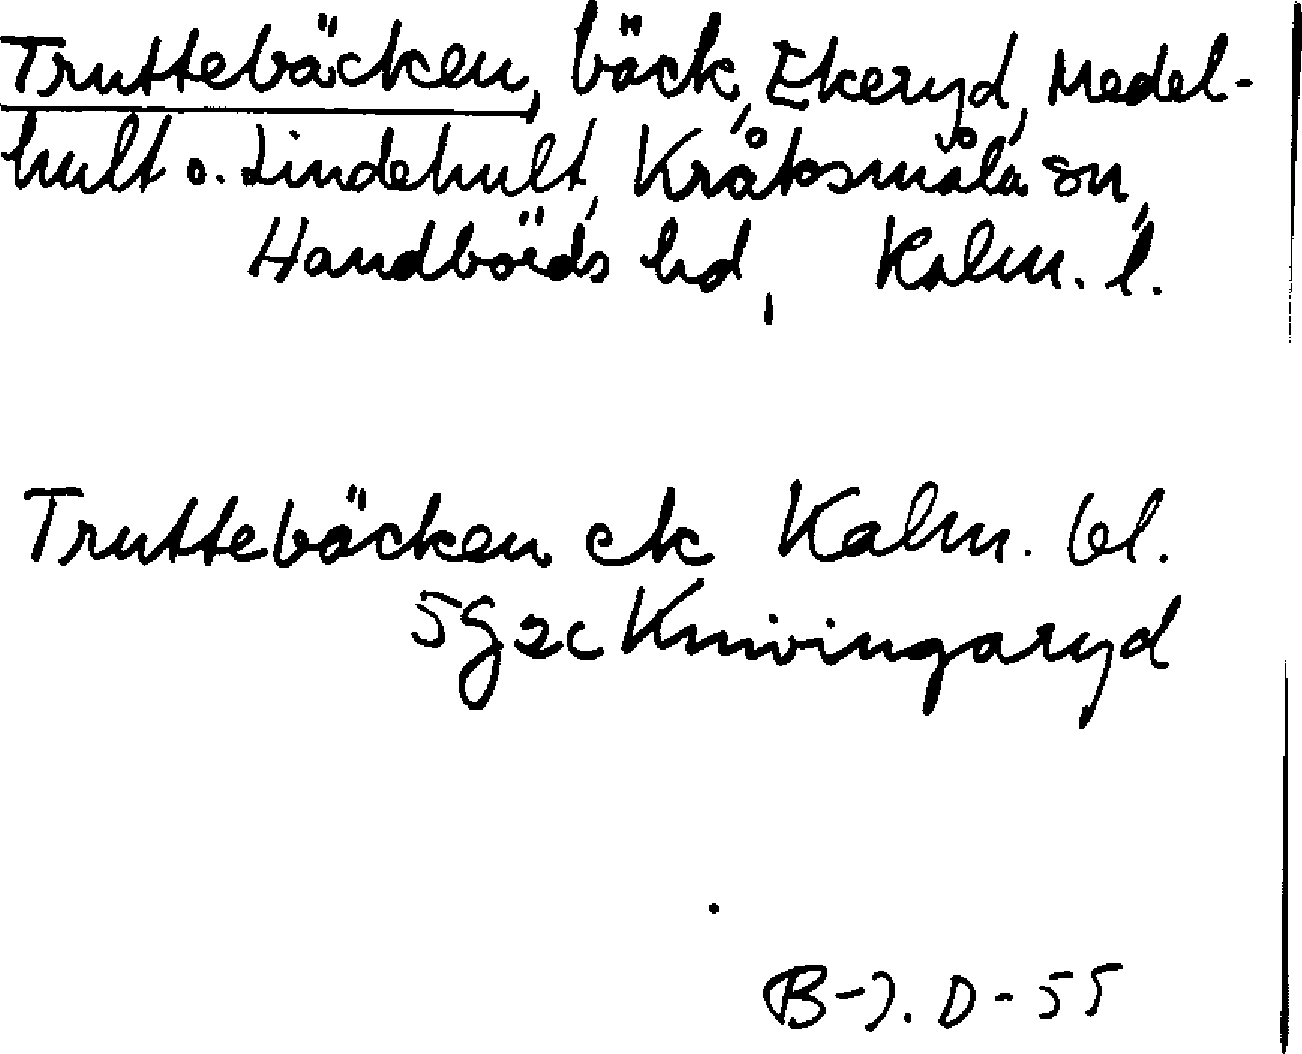 Truttebäcken, bäck, Ekeryd, Medel-
hult o. Lindehult, Kråksmåla sn,
Handbörds hd, Kalm. l.
Truttebäcken ek Kalm. bl.
5g2c Knivingaryd
B-J. D-55